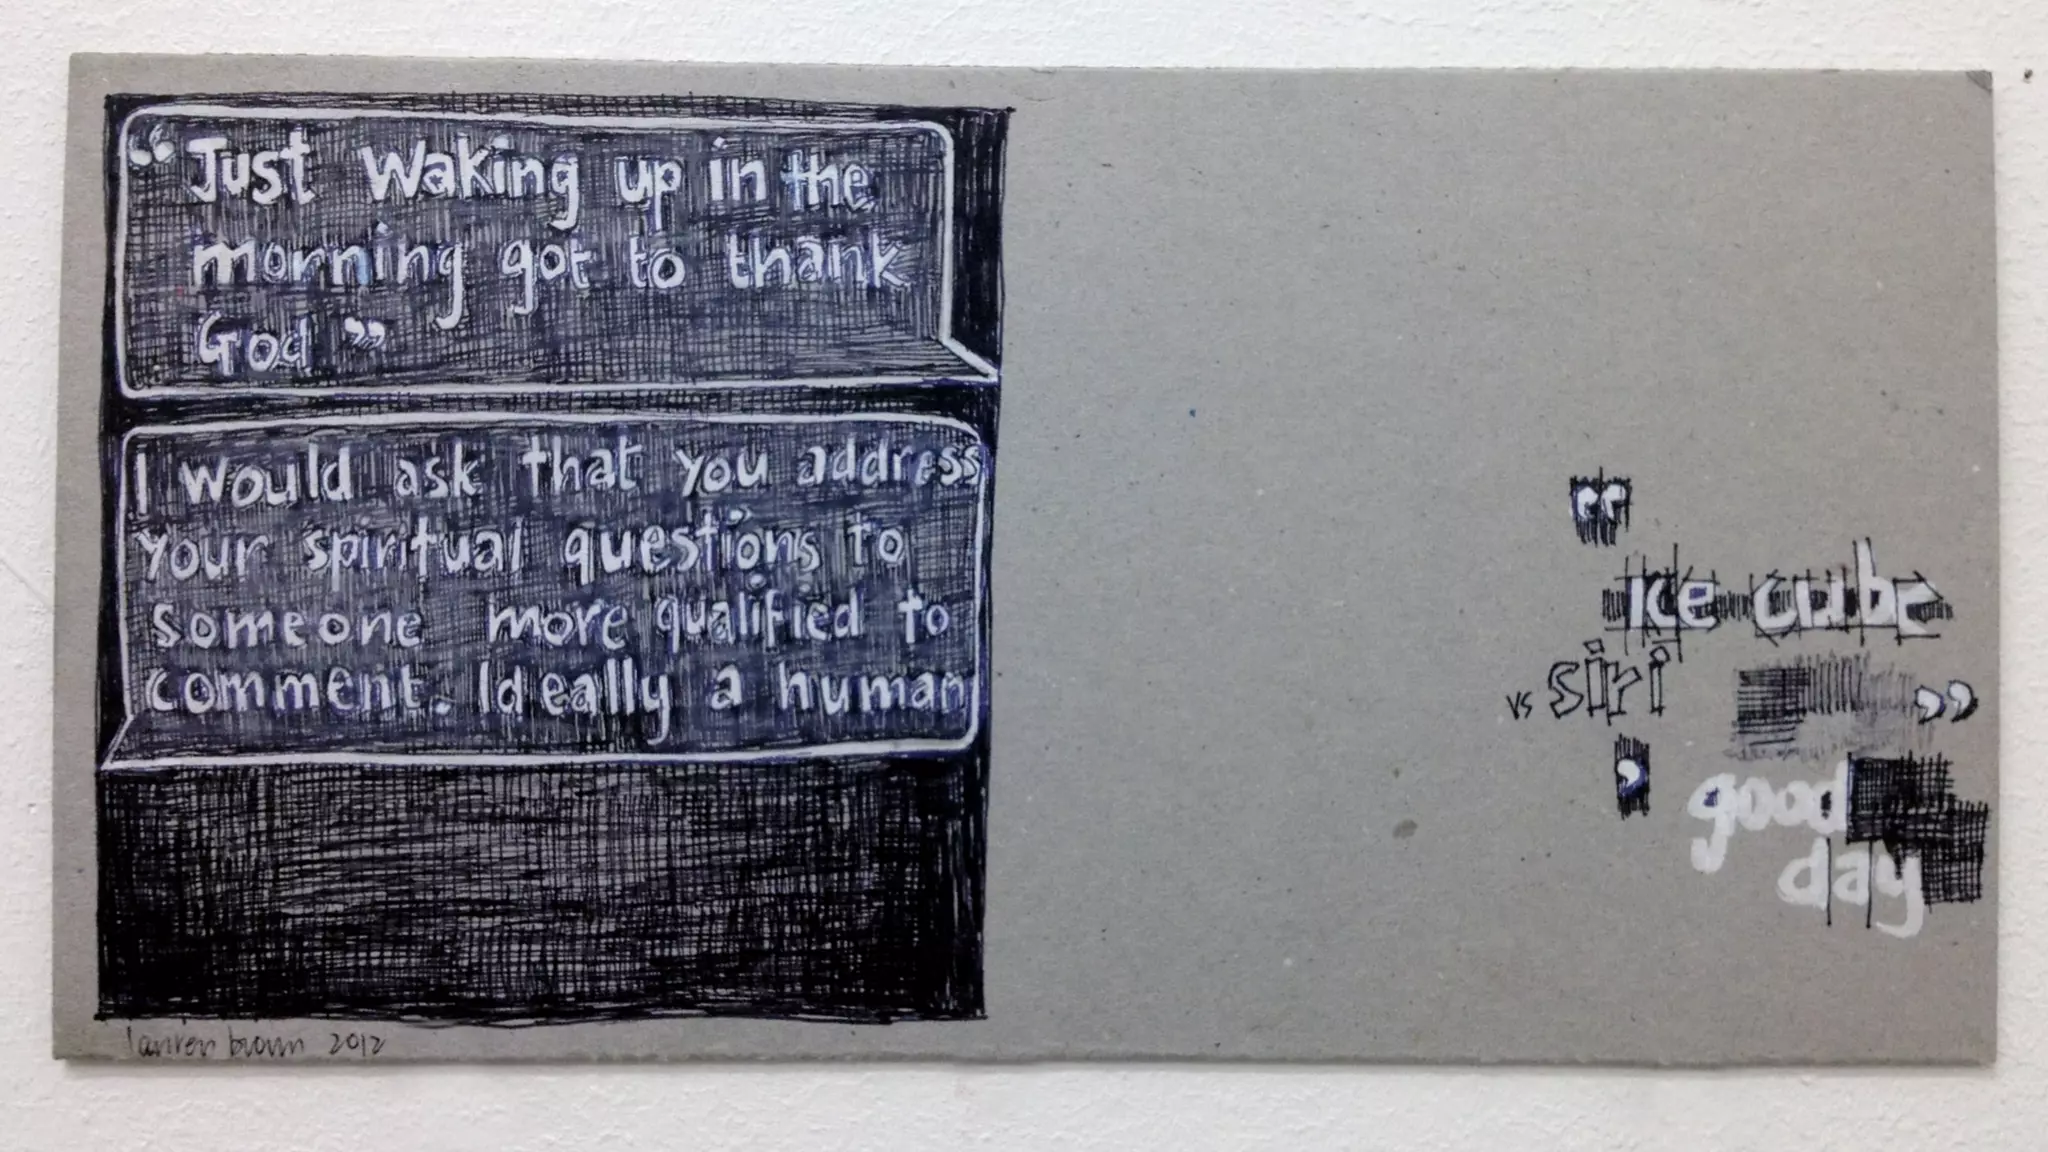 “Just waking up in the
morning got to thank
God”
I would ask that you address
your spiritual questions to
someone more qualified to
comment. Ideally a human
lauren brown 2012
“
ice cube
vs siri ”
’ good
day